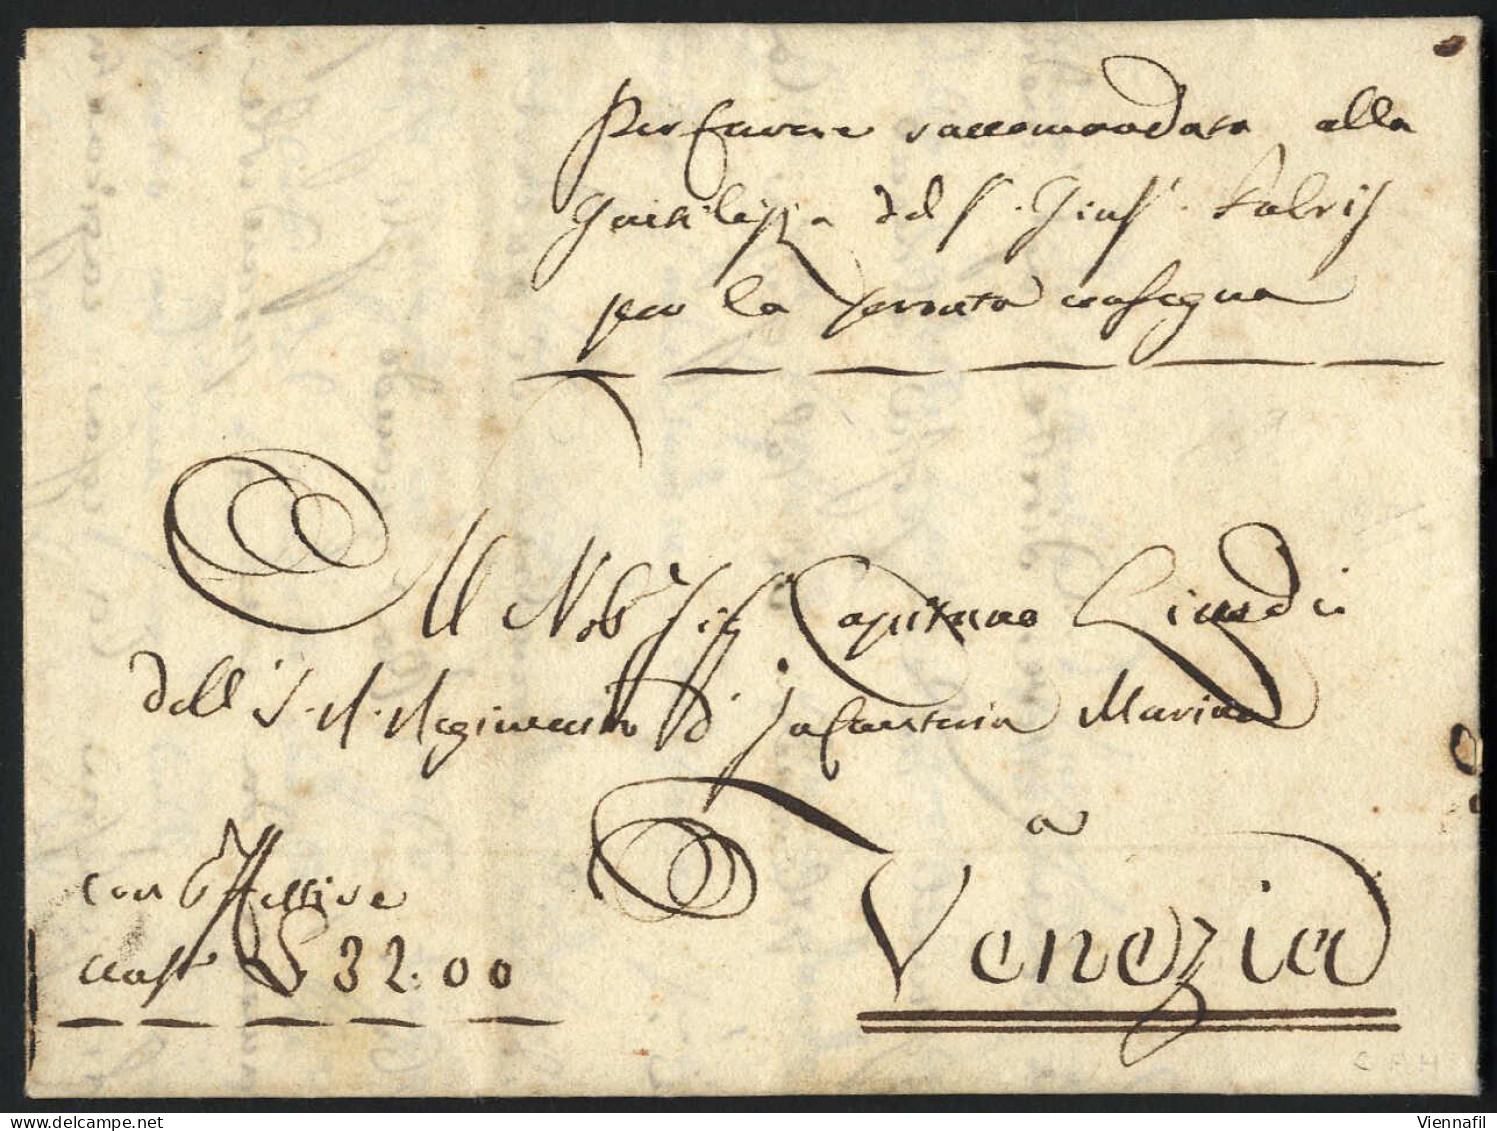 Per favore raccomandata alla
Gentilezza del S. Gius. Fabris
per la pronta consegna
Al Nob. Sig. Capitano
dell' I. R. Reggimento d' Infanteria Marina
a
Venezia
con Effettive
aust. L 32.00
Viennafil